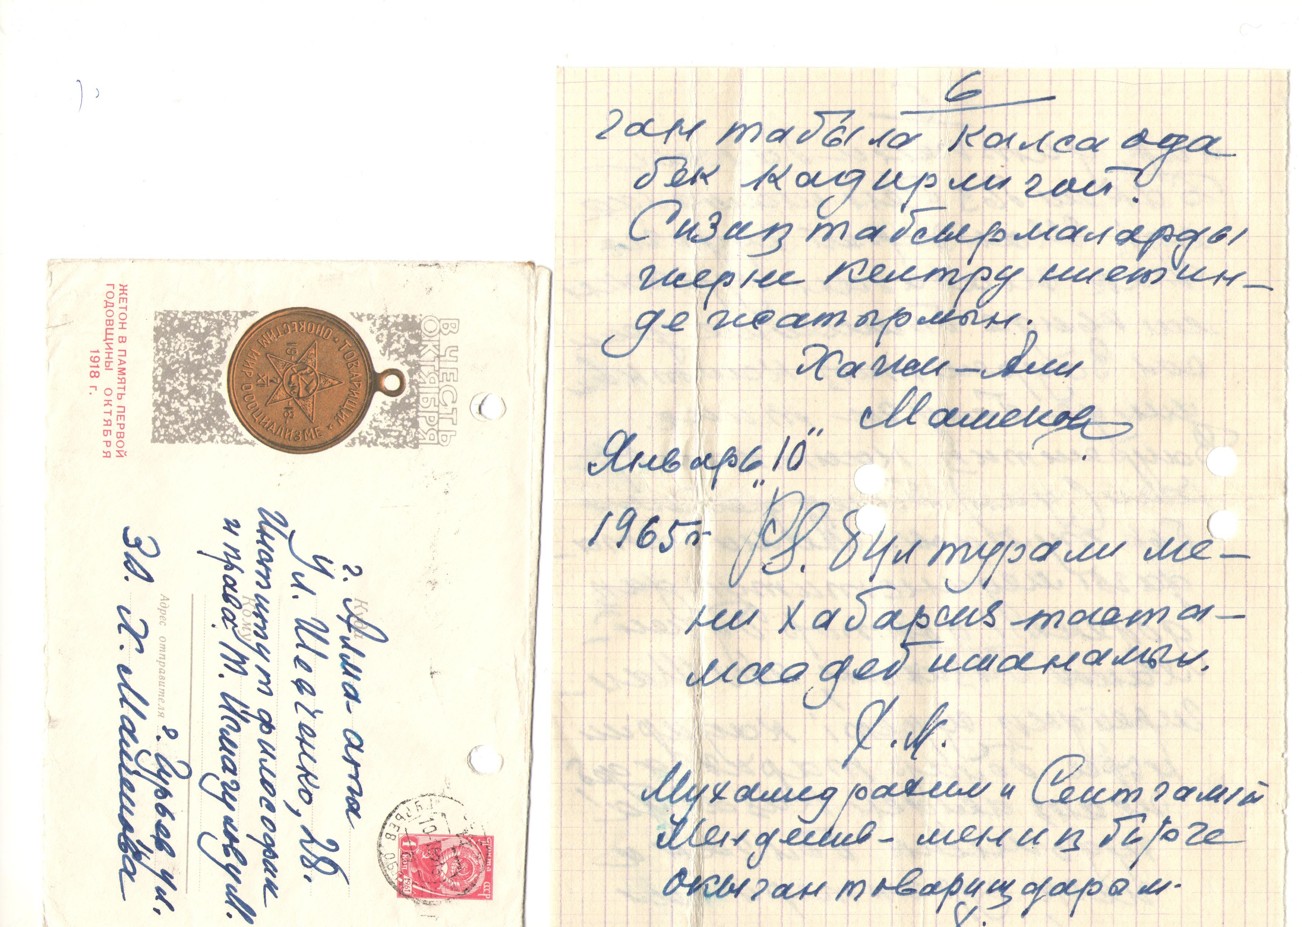 6
ган табыла калса ода
бек кадирли гой.
Сизиң табсырмаларды
жерне келтру ниетин-
де жатырмын.
Хажи-Али
Маменов
Январь "10"
1965 г.
P.S. бул турали ме-
ни хабарсиз таста-
маа деб ишанамын.
Х. М.
Мухамедрахим и Сеитгамй
Мендешев - мениң бірге
окыган товарищдарым.
ЖЕТОН В ПАМЯТЬ ПЕРВОЙ
ГОДОВЩИНЫ ОКТЯБРЯ
1918 г.
В ЧЕСТЬ
ОКТЯБРЯ
МИР СОЦИАЛИЗМЕ
Куда
г. Алма-ата
ул. Шевченко, 28.
Институт философии
и права.
Кому
т. Исмагулову
Адрес отправителя
г. Гурьев ул.
30. Х. Маменова